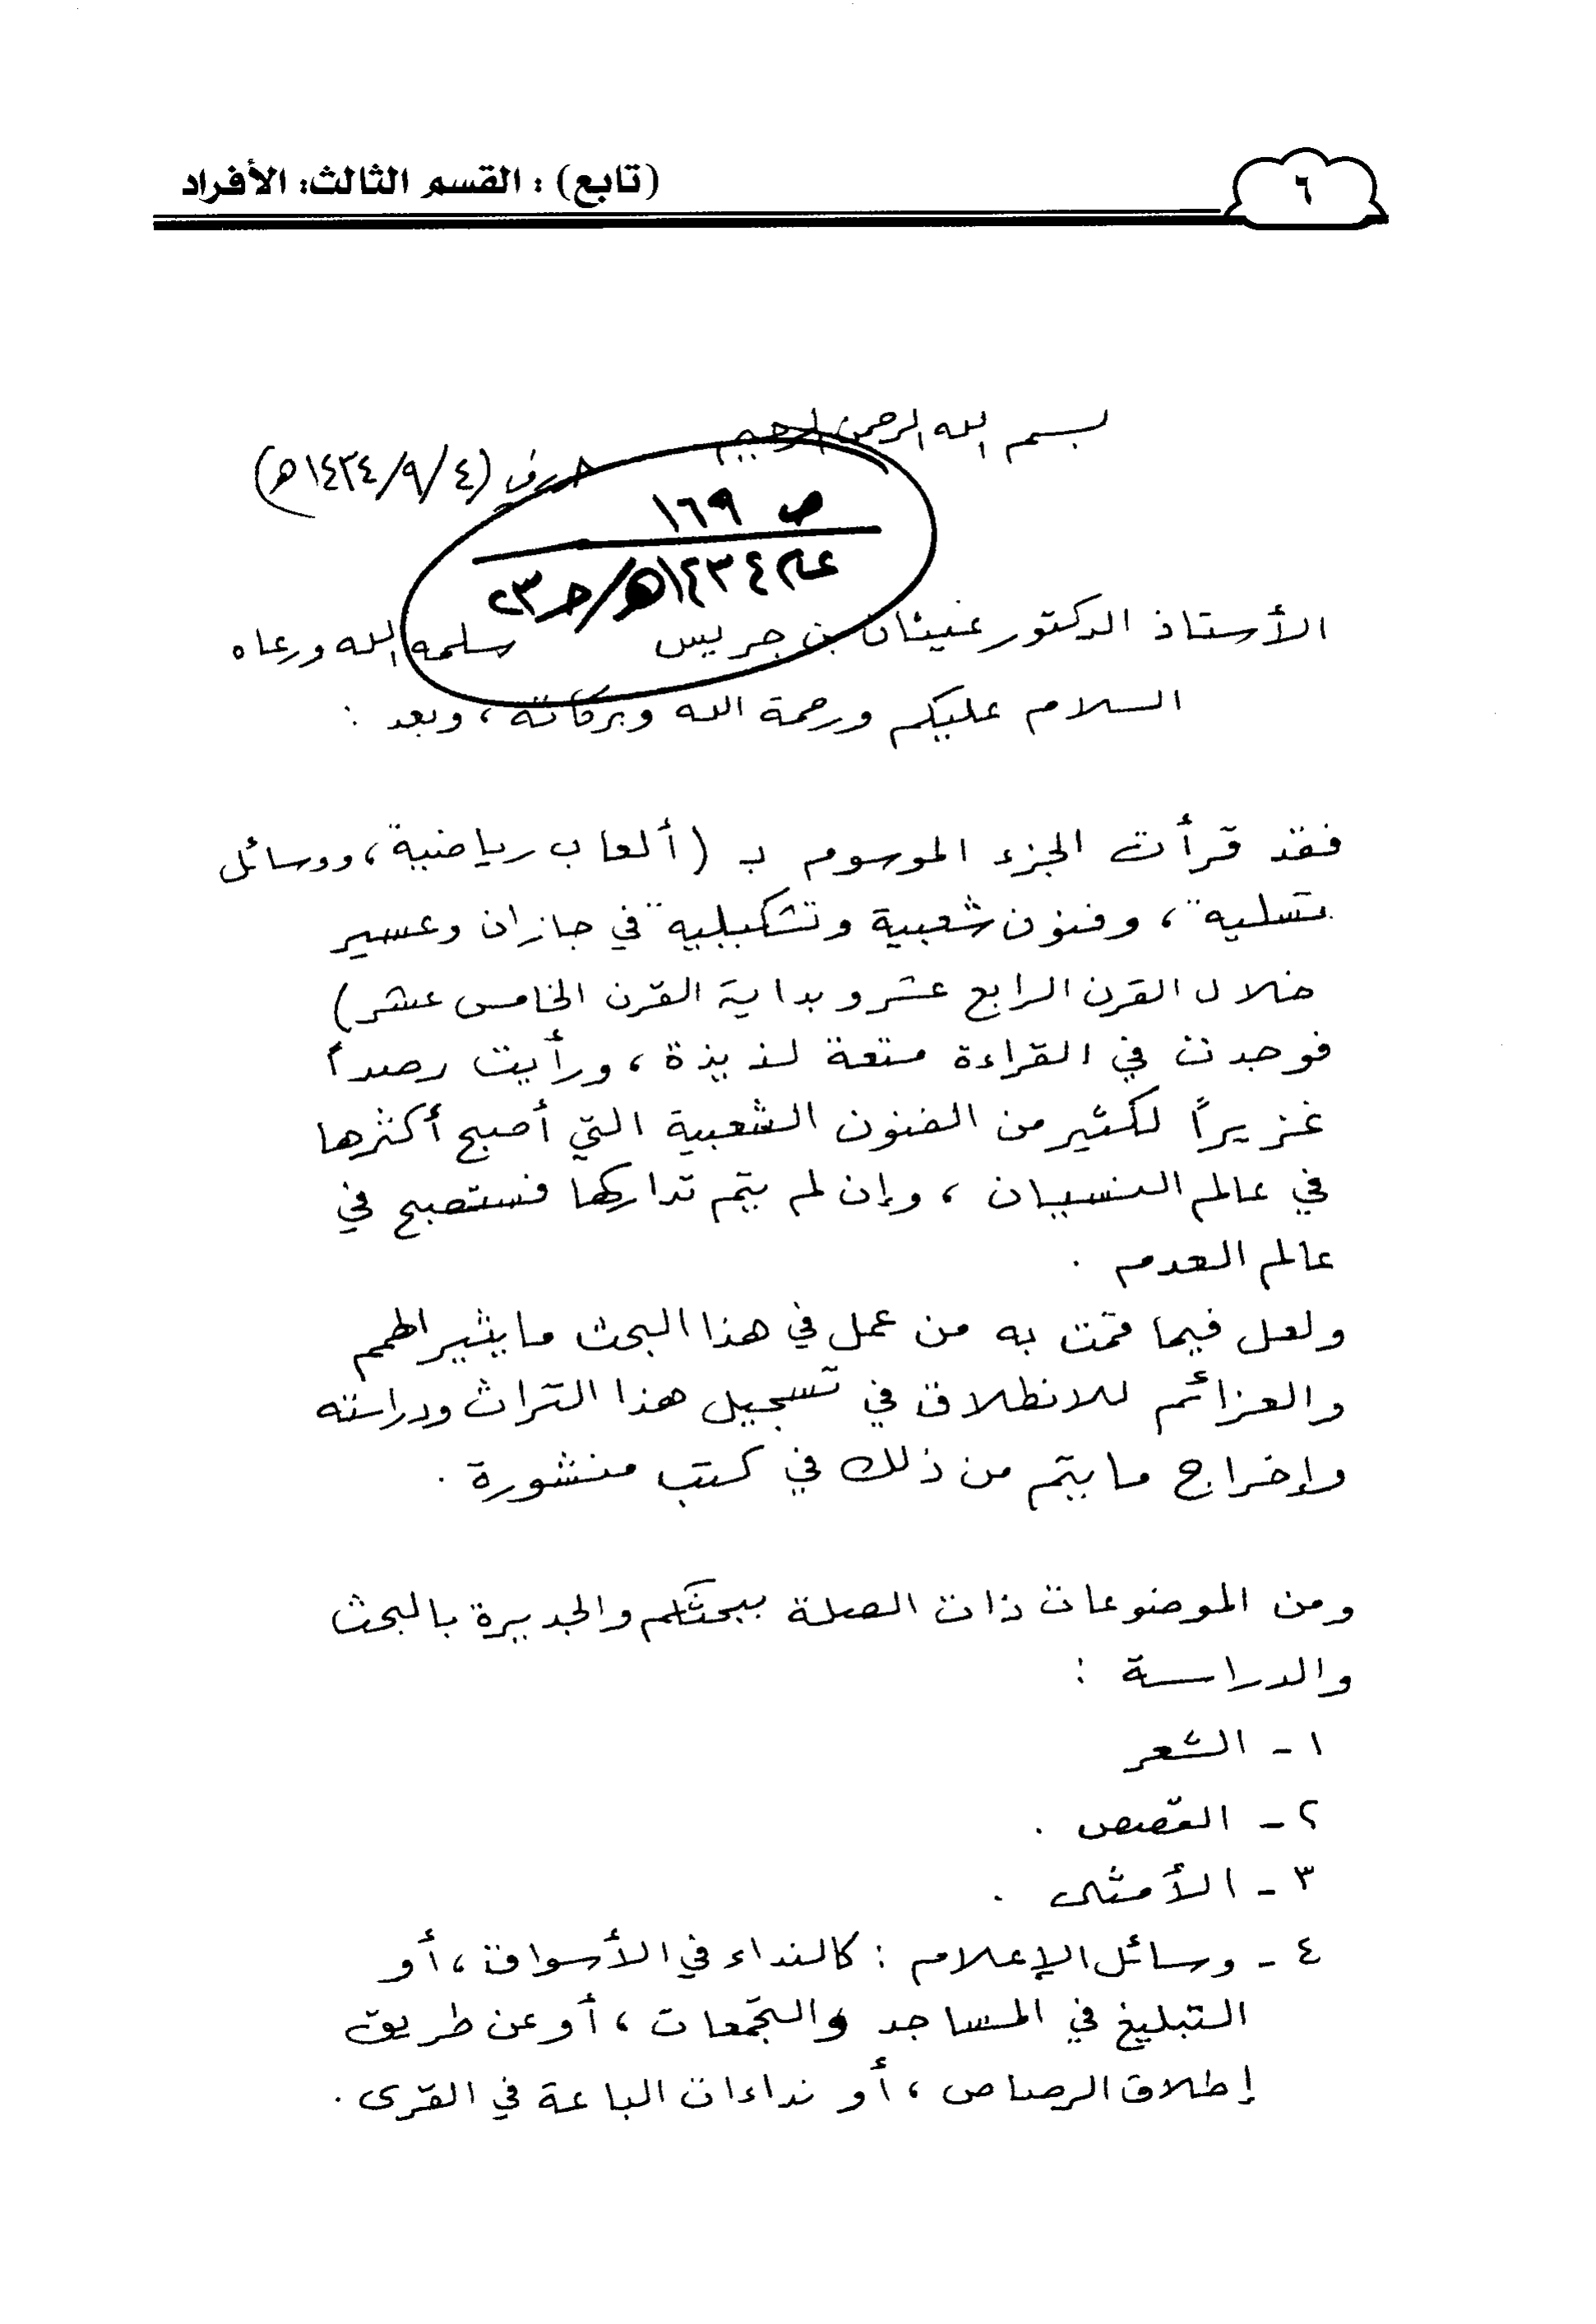 (تابع) : القسم الثالث: الأفراد
٦
بسم الله الرحمن الرحيم
حرر في (٤/٩/١٤٣٤هـ)
ص ١٦٩
عام ١٤٣٤هـ/ج٢٣
الأستاذ الدكتور غيثان بن جريس سلمه الله ورعاه
السلام عليكم ورحمة الله وبركاته ، وبعد :
فقد قرأت الجزء الموسوم بـ (ألعاب رياضية ، ووسائل
تسلية ، وفنون شعبية وتشكيلية في جازان وعسير
خلال القرن الرابع عشر وبداية القرن الخامس عشر)
فوجدت في القراءة متعة لذيذة ، ورأيت رصداً
غزيراً لكثير من الفنون الشعبية التي أصبح أكثرها
في عالم النسيان ، وإن لم يتم تداركها فستصبح في
عالم العدم .
ولعل فيما قمت به من عمل في هذا البحث ما يثير الهمم
والعزائم للانطلاق في تسجيل هذا التراث ودراسته
وإخراج ما يتم من ذلك في كتب منشورة .
ومن الموضوعات ذات الصلة ببحثكم والجديرة بالبحث
والدراسة :
١ - الشعر
٢ - القصص .
٣ - الأمثال .
٤ - وسائل الإعلام : كالنداء في الأسواق ، أو
التبليغ في المساجد والتجمعات ، أو عن طريق
إطلاق الرصاص ، أو نداءات الباعة في القرى .